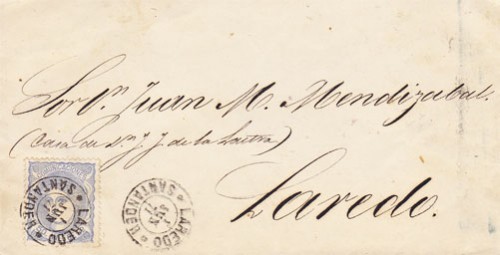 Sor Dn Juan M. Mendizabal.
(Casa de Dn J. J. de la Lastra)
Laredo.
LAREDO
SANTANDER
JUN
LAREDO
SANTANDER